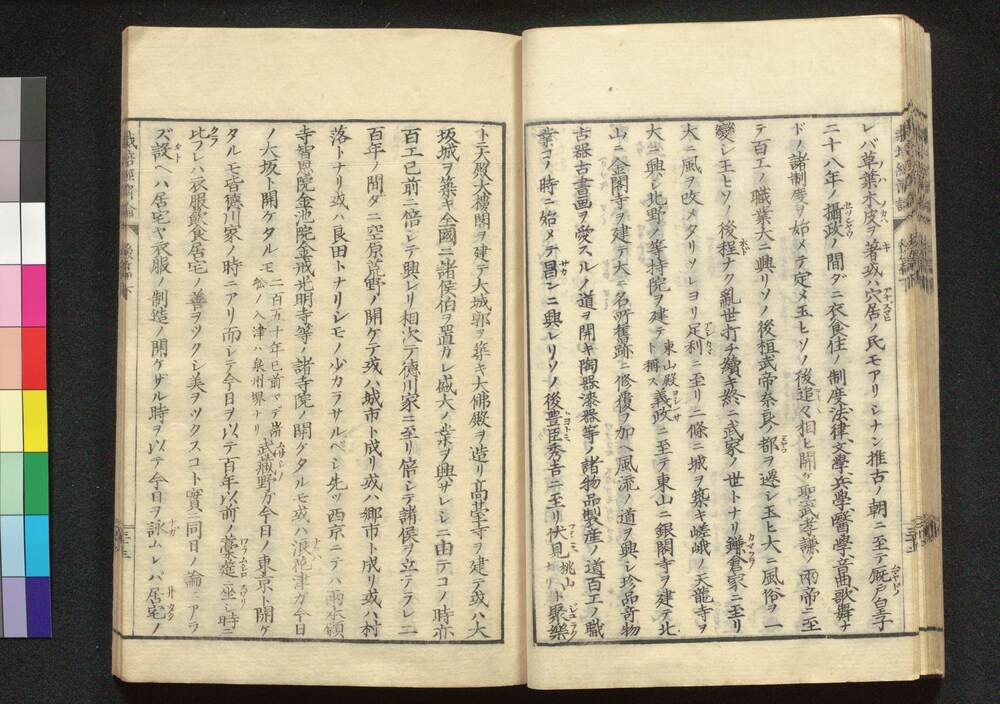 レバ草葉木皮ヲ著或ハ穴居ノ民モアリシナン推古ノ朝ニ至テ厩戸皇子
二十八年ノ攝政ノ間ダニ衣食住ノ制度法律文學兵學醫學音曲歌舞ナ
ドノ諸制度ヲ始メテ定メ玉ヒソノ後追々相ヒ開ケ聖武孝謙ノ兩帝ニ至
テ百工ノ職業大ニ興リソノ後桓武帝奈良ノ都ヲ遷シ玉ヒ大ニ風俗ヲ一
變シ玉ヒソノ後程ナク亂世打チ續キ終ニ武家ノ世トナリ鎌倉家ニ至リ
大ニ風ヲ改メタリソレヨリ足利ニ至リ二條ニ城ヲ築キ嵯峨ノ天龍寺ヲ
大ニ興シ北野ノ等持院ヲ建テ東山殿ト稱ス義政ニ至テ東山ニ銀閣寺ヲ建テ北
山ニ金閣寺ヲ建テ大ニ名所舊跡ニ修復ヲ加ヘ風流ノ道ヲ興シ珍品竒物
古器古書画ヲ愛スルノ道ヲ開キ陶器漆器等ノ諸物品製産ノ道百工ノ職
業コノ時ニ始メテ昌ンニ興レリソノ後豊臣秀吉ニ至リ伏見桃山ハト聚樂
ト天殿大樓閣ヲ建テ大城郭ヲ築キ大佛殿ヲ造リ高䑓寺ヲ建テ或ハ大
坂城ヲ築キ全國ニ諸侯伯ヲ置カレ盛大ノ業ヲ興サレシニ由テコノ時亦
百工已前ニ倍シテ興レリ相次テ德川家ニ至リ倍シテ諸侯ヲ立テラレ二
百年ノ間ダニ空原荒野ノ開ケテ或ハ城市ト成リ或ハ郷市ト成リ或ハ村
落トナリ或ハ良田トナリシモノ少カラサルベシ先ツ西京ニテハ兩本願
寺智恩院金池院金戒光明寺等ノ諸寺院ノ開ケタルモ或ハ浪花津ガ今日
ノ大坂ト開ケタルモ二百五十年已前マデ米松ノ入津ハ泉州堺ナリ武藏野ガ今日ノ東京ト開ケ
タルモ皆德川家ノ時ニアリ而シテ今日ヲ以テ百年以前ノ藁筵ニ坐シ時ニ
比ブレハ衣服飲食居宅ノ善ヲツクシ美ヲツクスコト實ニ同日ノ論ニアラ
ズ設ヘハ居宅ヤ衣服ノ制造ノ開ケザル時ヲ以テ今日ヲ詠ムレバ居宅ノ